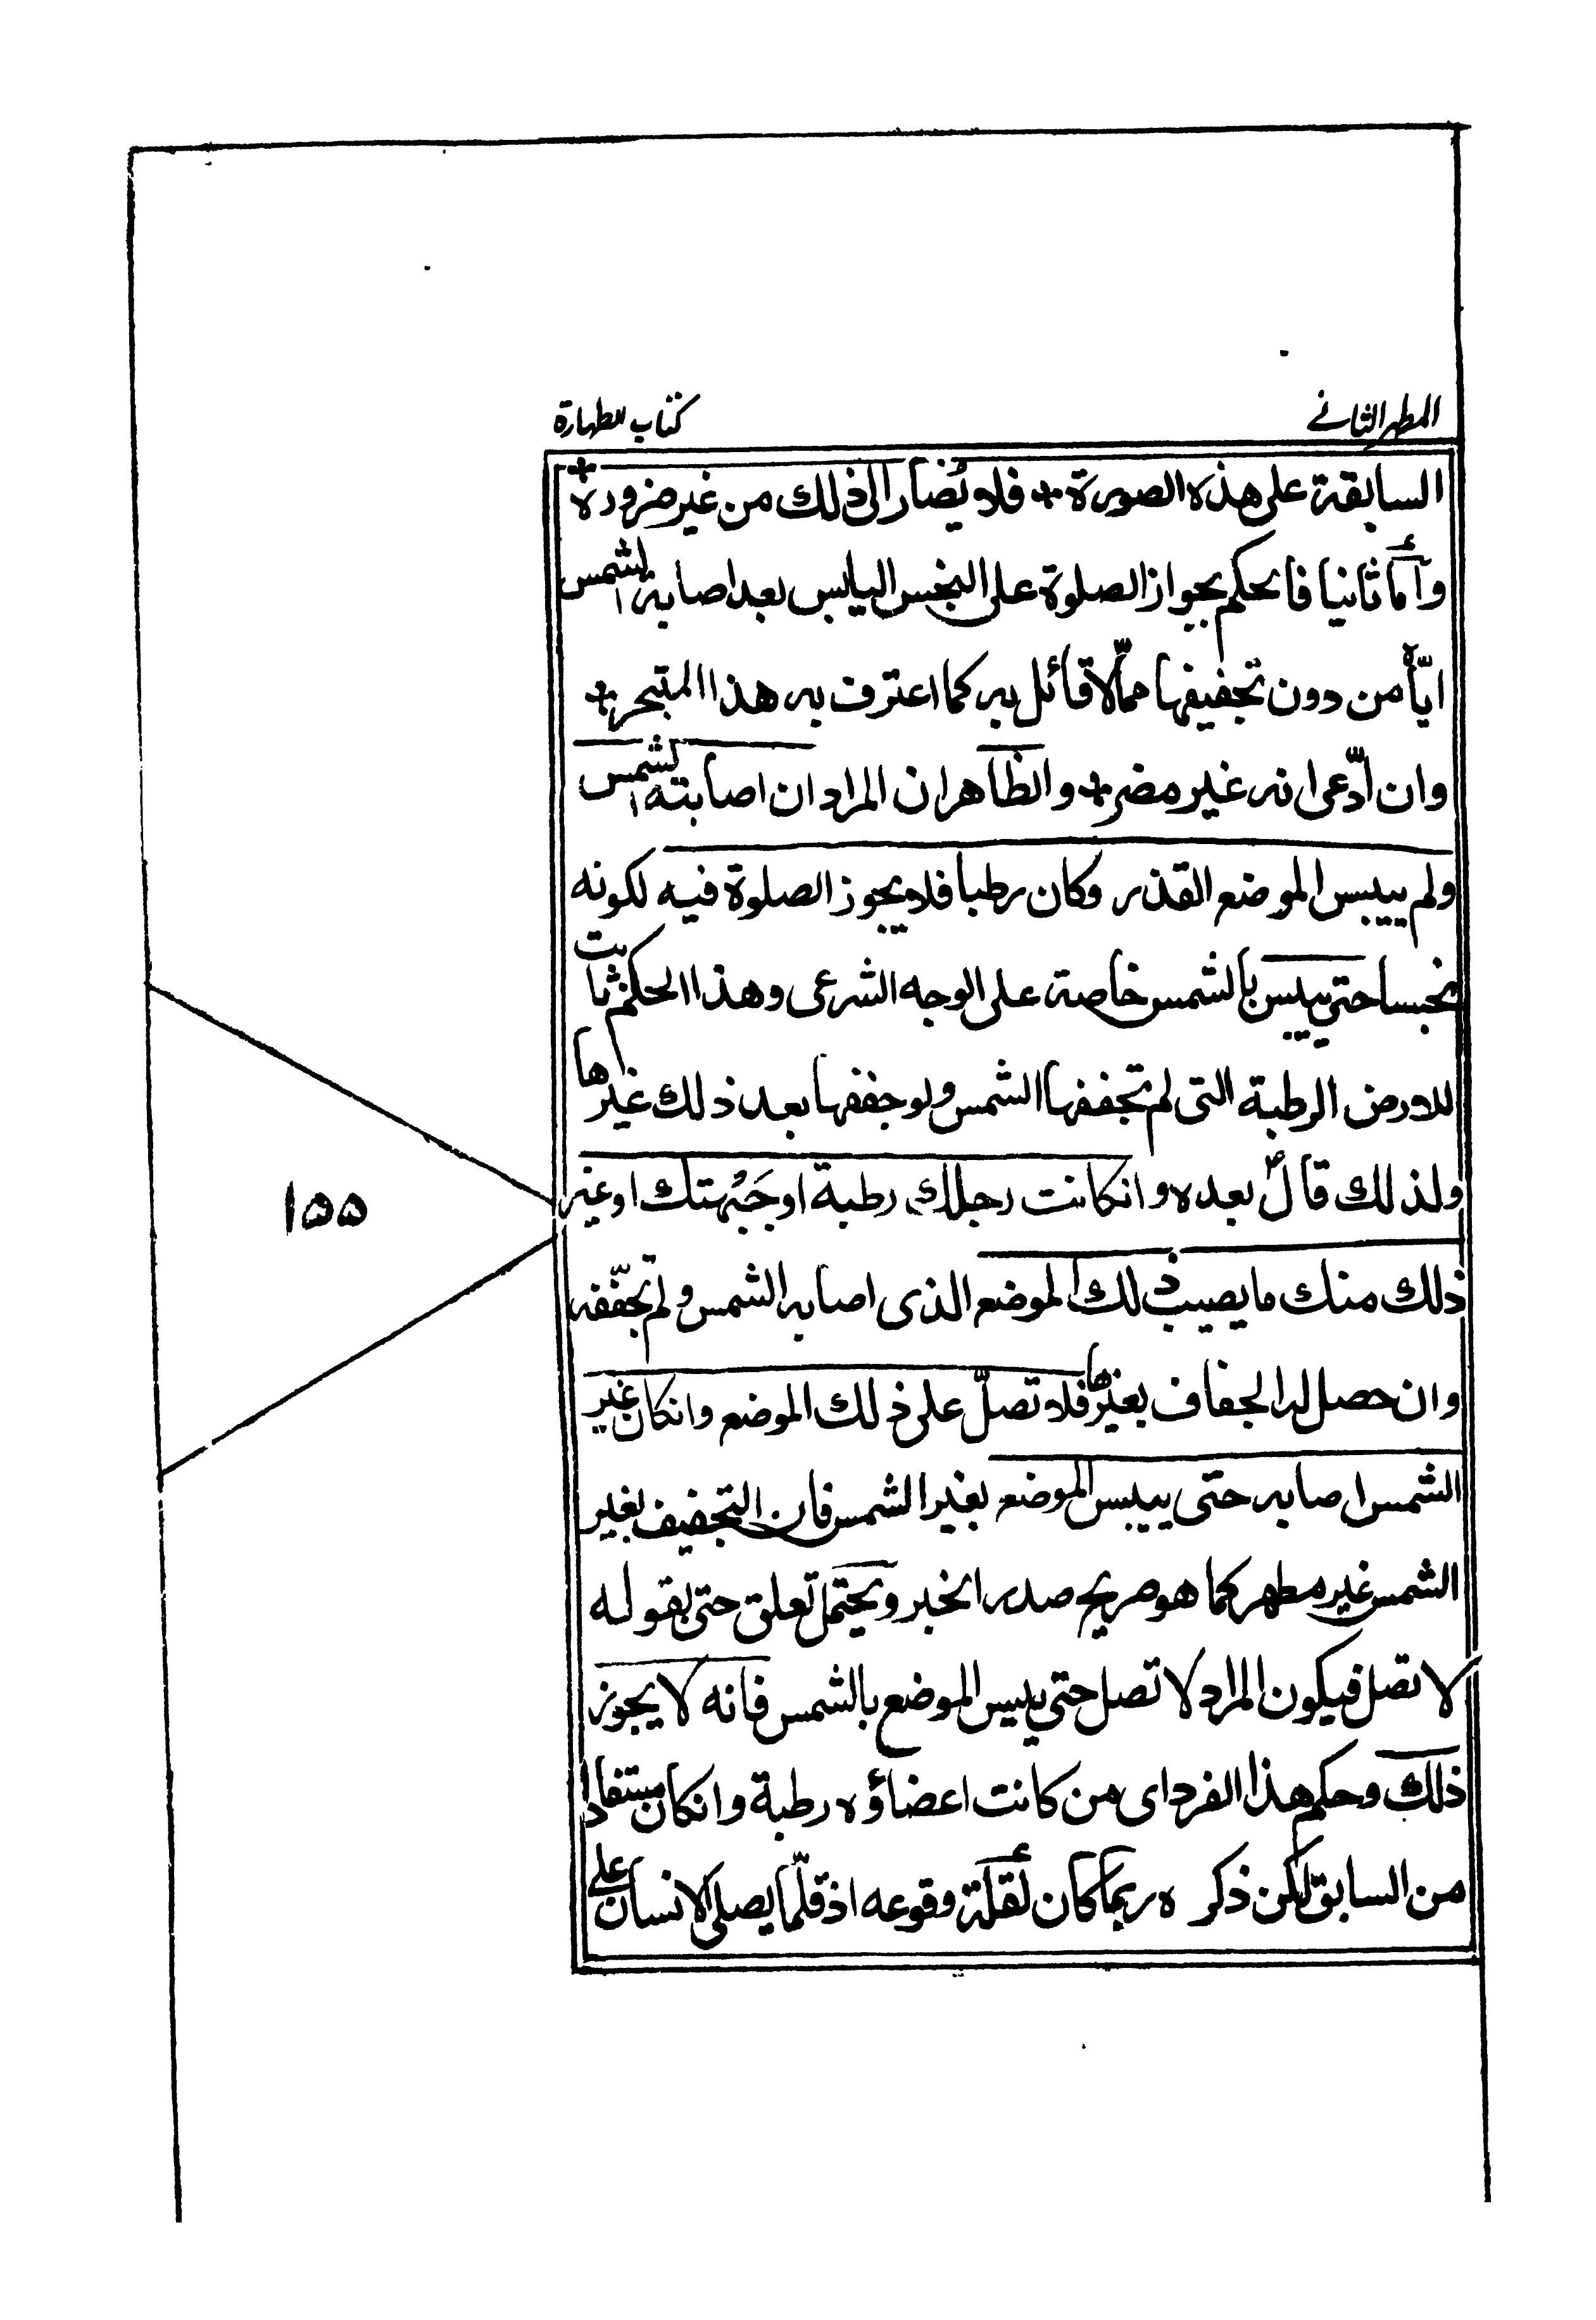 المطهر الثاني
كتاب الطهارة
السابقة على هذه الصورة فلا يُصار الى ذلك من غير ضرورة
وأمّا ثانيا فالحكم بجواز الصلوة على النجس اليابس بعد اصابة الشمس
ايّاه من دون تجفيفها ممّا لا قائل به كما اعترف به هذا المتبحر
وان ادّعى انه غير مضر والظاهر ان المراد ان اصابته الشمس
ولم ييبس الموضع القذر وكان رطبا فلا يجوز الصلوة فيه لكونه
نجسا حتى ييبس بالشمس خاصة على الوجه الشرعى وهذا الحكم ثابت
للارض الرطبة التى لم تجففها الشمس ولو جففها بعد ذلك غيرها
ولذلك قال بعده وانكانت رجلك رطبة او جَبْهتك او غير
ذلك منك ما يصيب ذلك الموضع الذى اصابه الشمس ولم تجفّفه
وان حصل له الجفاف بغيرها فلا تصلّ على ذلك الموضع وانكان غير
الشمس اصابه حتى ييبس الموضع بغير الشمس فان التجفيف بغير
الشمس غير مطهر كما هو صريح صدر الخبر ويحتمل تعلق حتى بقوله
لا تصل فيكون المراد لا تصل حتى ييبس الموضع بالشمس فانه لا يجوز
ذلك وحكم هذا الفرد اى من كانت اعضاؤه رطبة وانكان مستفادا
من السابق لكن ذكره ربما كان لقلة وقوعه اذ قلّما يصلى الانسان على
١٥٥